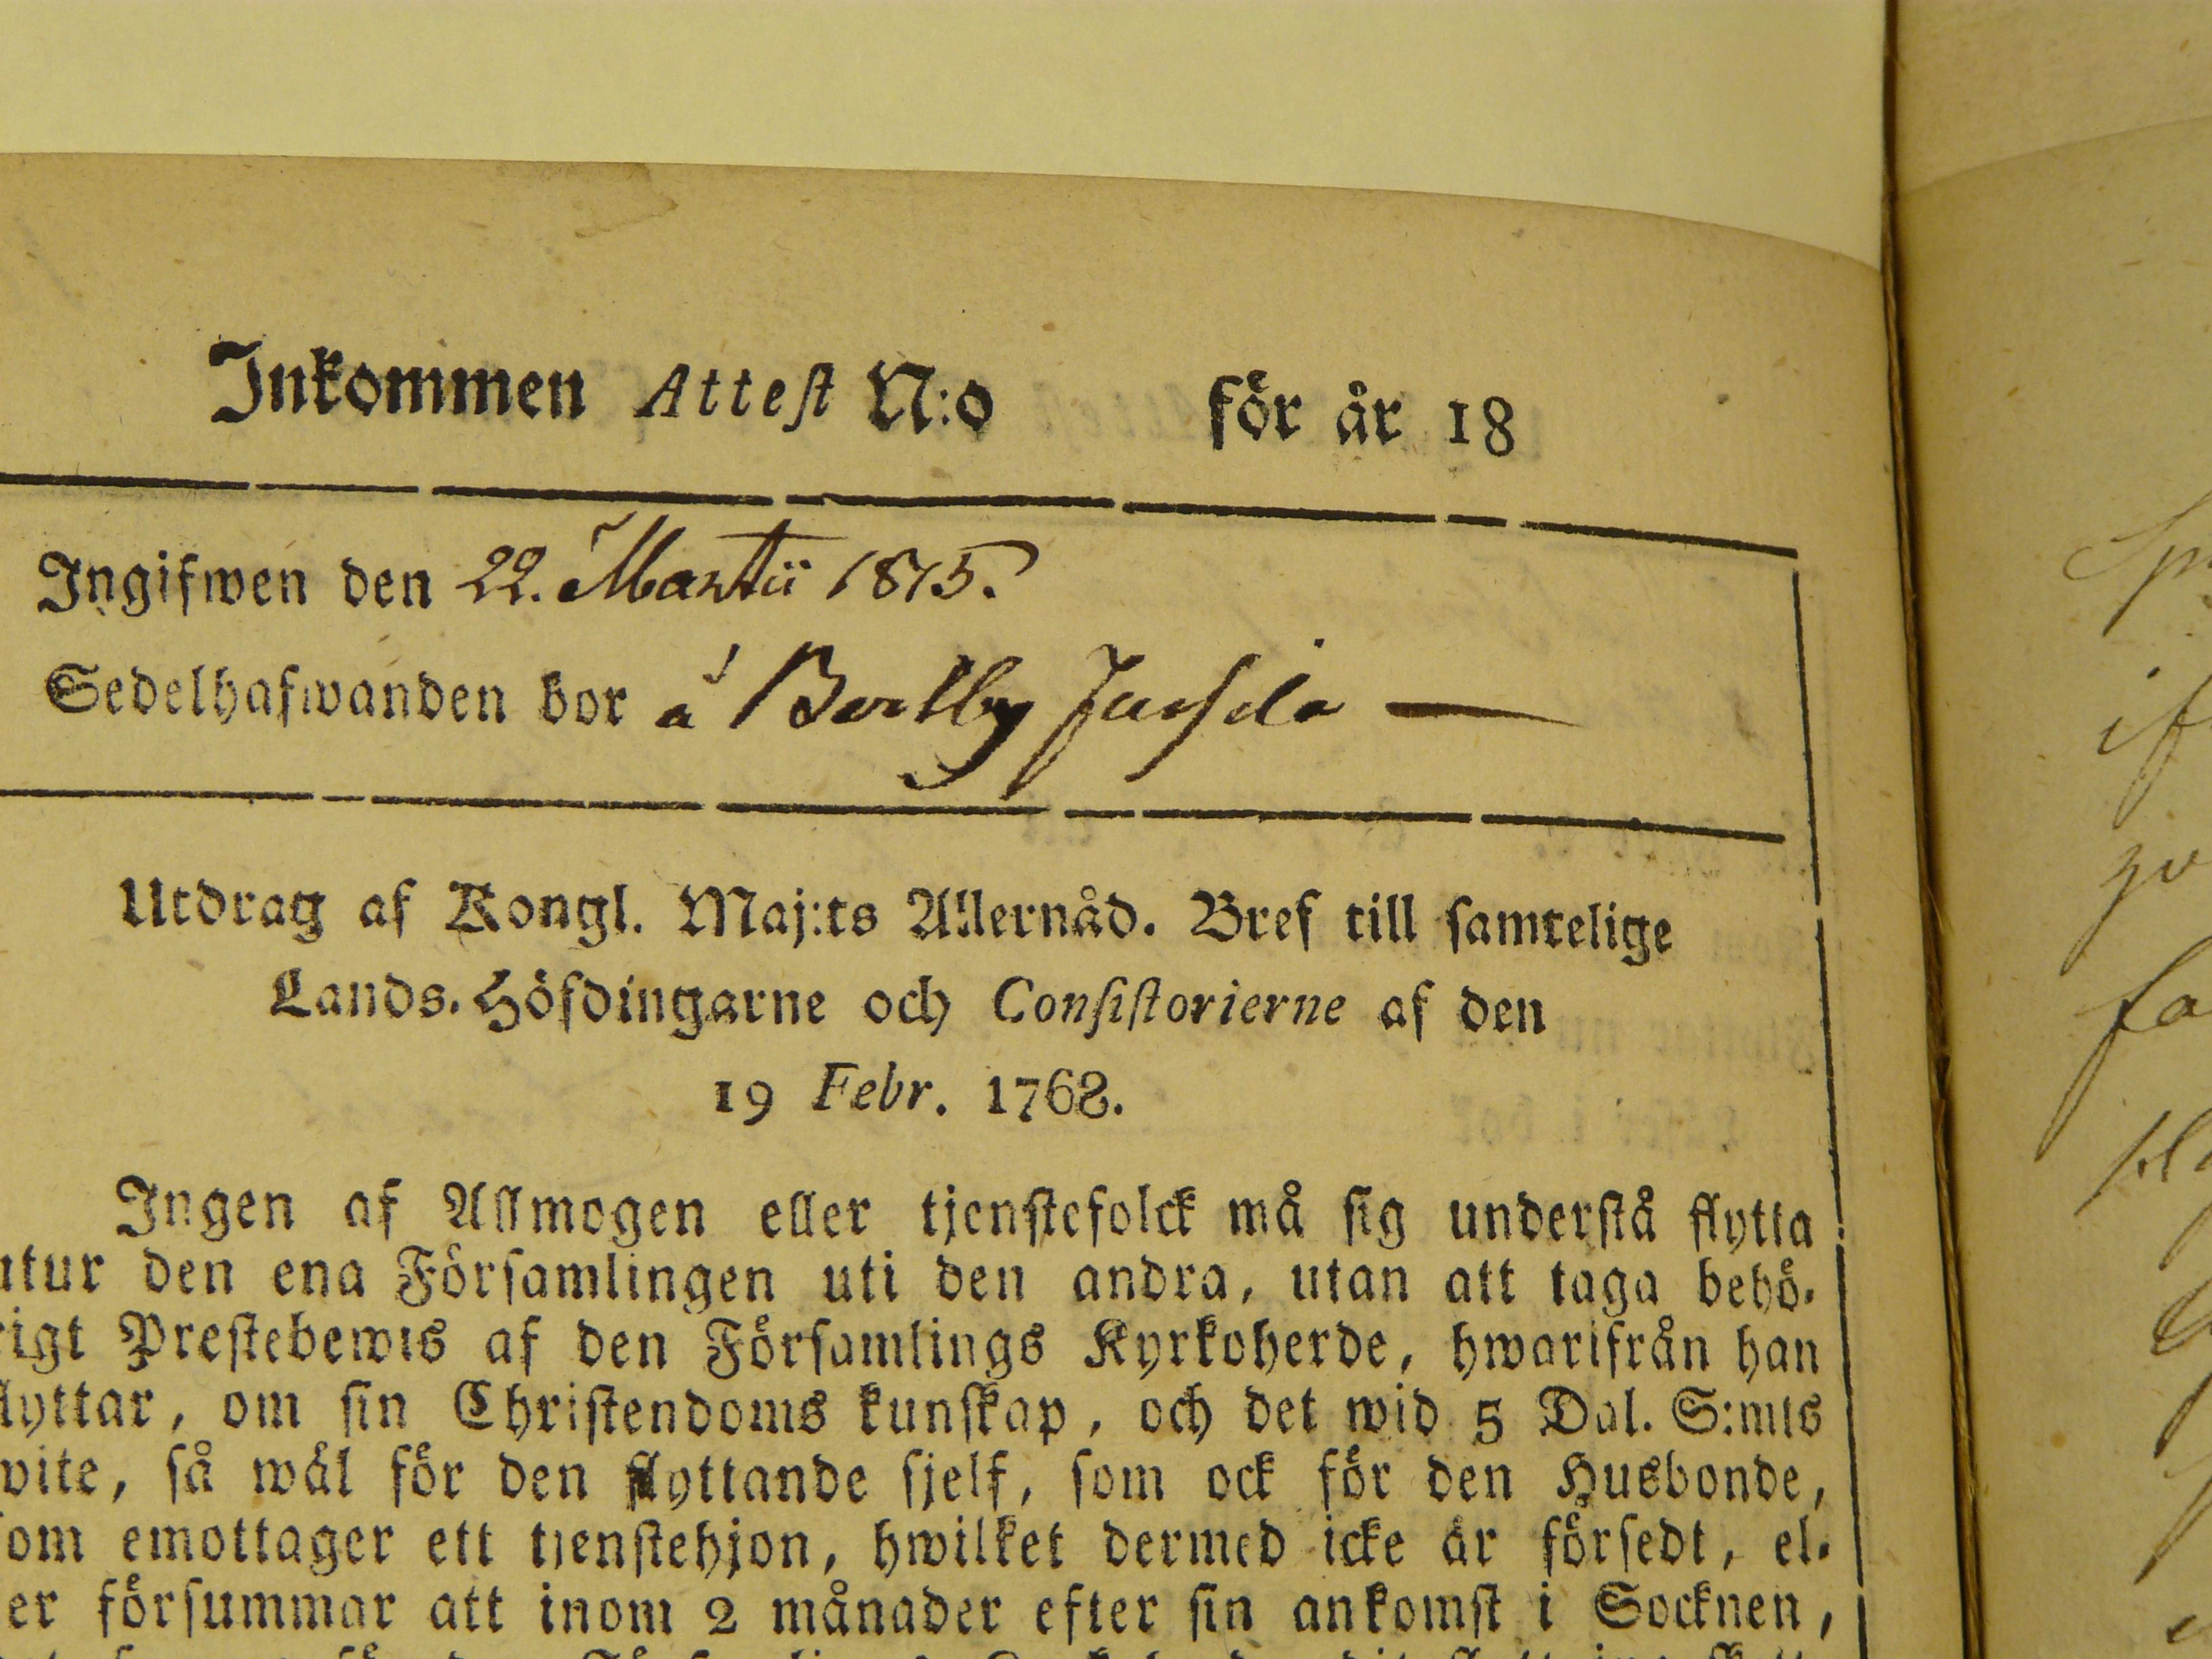 Inkommen Attest N:o för år 18
Ingifwen den 22. Martii 1815.
Sedelhafwanden bor å
Utdrag af Kongl. Maj:ts Allernåd. Bref till samtelige
Lands-Höfdingarne och Consistorierne af den
19 Febr. 1768.
Ingen af Allmogen eller tjenstefolck må sig understå flytta
utur den ena Församlingen uti den andra, utan att taga behö-
rigt Prestebewis af den Församlings Kyrkoherde, hwarifrån han
flyttar, om sin Christendoms kunskap, och det wid 5 Dal. S:mts
wite, så wäl för den flyttande sjelf, som ock för den Husbonde,
som emottager ett tjenstehjon, hwilket dermed icke är försedt, el-
ler försummar att inom 2 månader efter sin ankomst i Socknen,